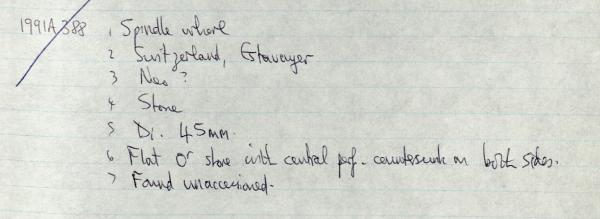 1991A388 1 Spindle whorl
2 Switzerland, Estavayer
3 Neo ?
4 Stone
5 Di. 45mm.
6 Flat O stone with central perf. countersunk on both sides.
7 Found unaccessioned.